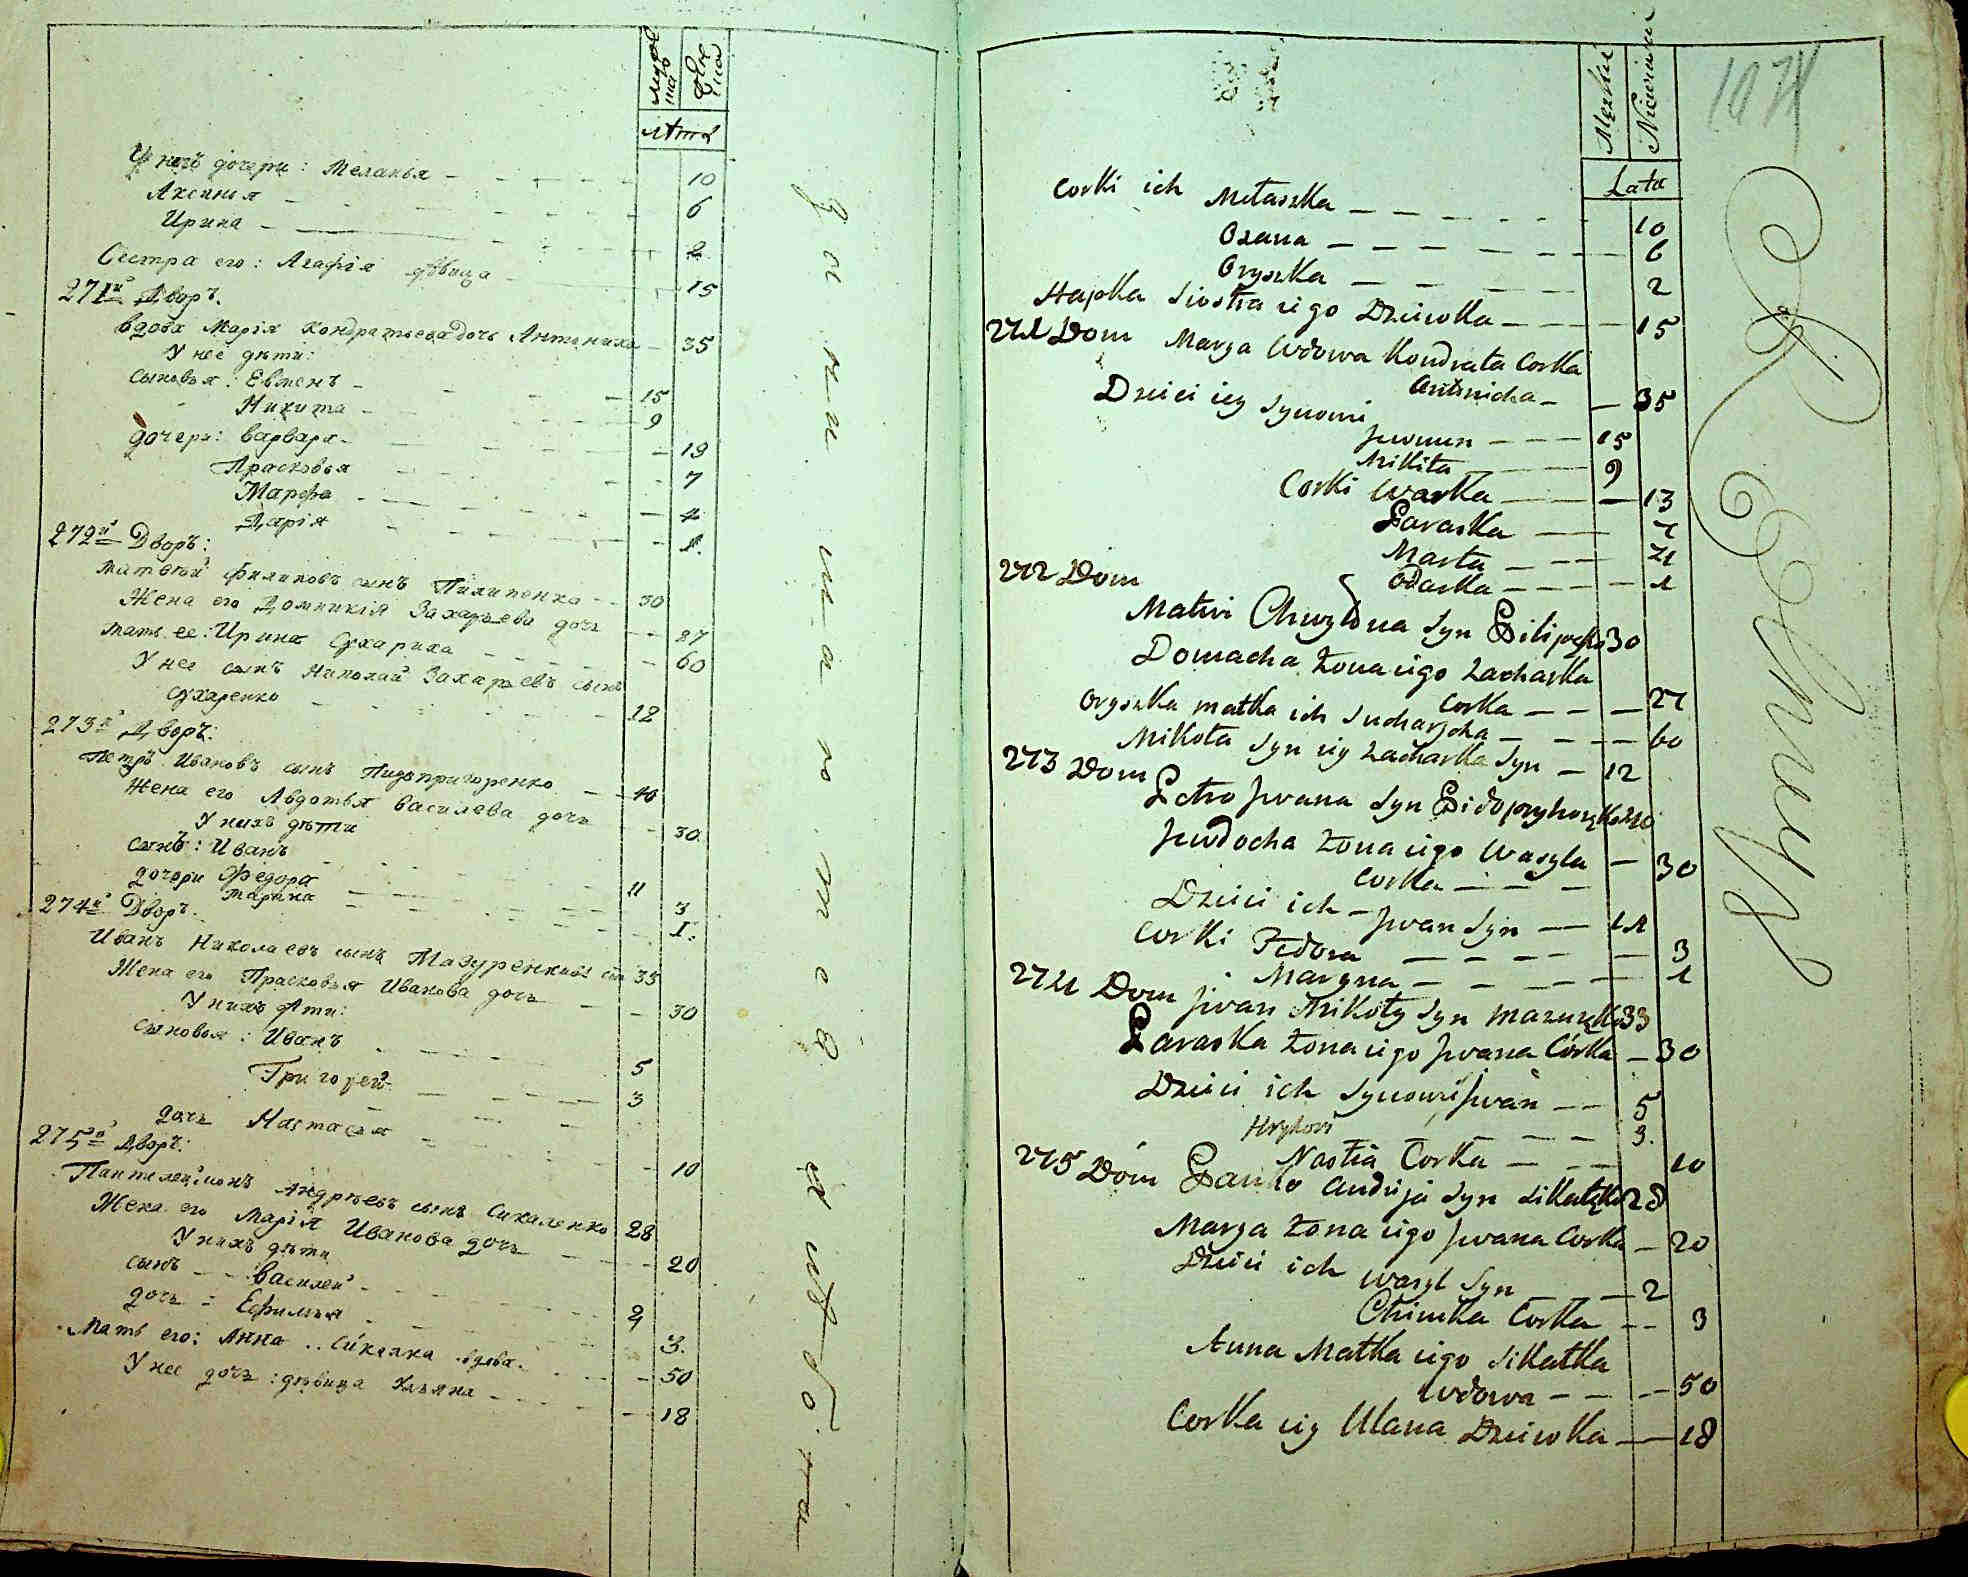 мужескъ
женска
лѣта
У него дочери: Меланья - 10
Аксинья - 6
Ирина - 2
Сестра его: Агафія дѣвица - 15
271й Дворъ.
вдова Марія Кондратьева дочь Антониха - 35
У нее дѣти:
сыновья: Евменъ - 15
Никита - 9
дочери: Варвара - 13
Прасковья - 7
Марфа - 4
Дарія - 1.
272й Дворъ:
Матвѣй Филиповъ сынъ Пилипенко - 30
Жена его Домникія Захарьева дочь - 27
мать ее: Ирина Сухариха - 60
У нее сынъ Николай Захарьевъ сынъ
Сухаренко - 12
273й Дворъ:
Петръ Ивановъ сынъ Пидопригоренко - 40
Жена его Авдотья Василева дочь - 30.
У нихъ дѣти
сынъ: Иванъ - 11
дочери Федора - 3
Марина - 1.
274й Дворъ.
Иванъ Николаевъ сынъ Мазуренко 33
Жена его Прасковья Иванова дочь - 30
У нихъ дѣти:
сыновья: Иванъ - 5
Григорей - 3
дочь Настасья - 10
275й Дворъ:
Пантелеймонъ Андрѣевъ сынъ Сикаленко 28
Жена его Марія Иванова дочь - 20
У нихъ дѣти
сынъ - Василей - 2
дочь = Ефимья - 3.
Мать его: Анна .. Сикалка вдова - 50
У нее дочь: дѣвица Ульяна - 18
Męzkie
Niewieście
107
Lata
Corki ich Mełaszka - 10
Oxana - 6
Oryszka - 2
Hapka Siostra iego Dziewka - 15
271 Dom Marya Wdowa Kondrata Corka
Antonicha - 35
Dzieci iey Synowie
Jewmen - 15
Mikita - 9
Corki Warka - 13
Paraska - 7
Marta - 4
Odarka - 1
272 Dom
Matwi Chwyłona Syn Pilipenko 30
Domacha żona iego Zacharka
Corka - 27
Oryszka matka ich Sucharycha - 60
Mikoła Syn iey Zacharka Syn - 12
273 Dom
Petro Jwana Syn Pidopryhorenko 40
Jewdocha żona iego Wasyla
Corka - 30
Dzieci ich - Jwan Syn - 11
Corki Fedora - 3
Maryna - 1
274 Dom Jwan Mikoły Syn Mazurenko 33
Paraska żona iego Jwana Córka - 30
Dzieci ich Synowie Jwan - 5
Hryhori - 3.
Nastia Corka - 10
275 Dom Panko Andrija Syn Sikalenko 28
Marya żona iego Jwana Corka - 20
Dzieci ich Wasyl Syn - 2
Chimka Corka - 3
Anna Matka iego Sikałka
wdowa - 50
Corka iey Ulana Dziewka - 18